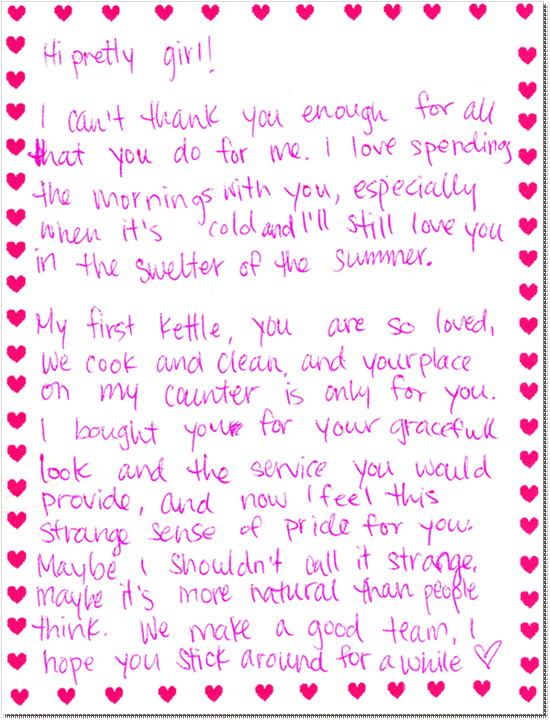 Hi pretty girl!
I can't thank you enough for all
that you do for me. I love spending
the mornings with you, especially
when it's cold and I'll still love you
in the swelter of the summer.
My first kettle, you are so loved,
we cook and clean, and your place
on my counter is only for you.
I bought you for your gracefull
look and the service you would
provide, and now I feel this
strange sense of pride for you.
Maybe I shouldn't call it strange,
maybe it's more natural than people
think. We make a good team, I
hope you stick around for a while ♡